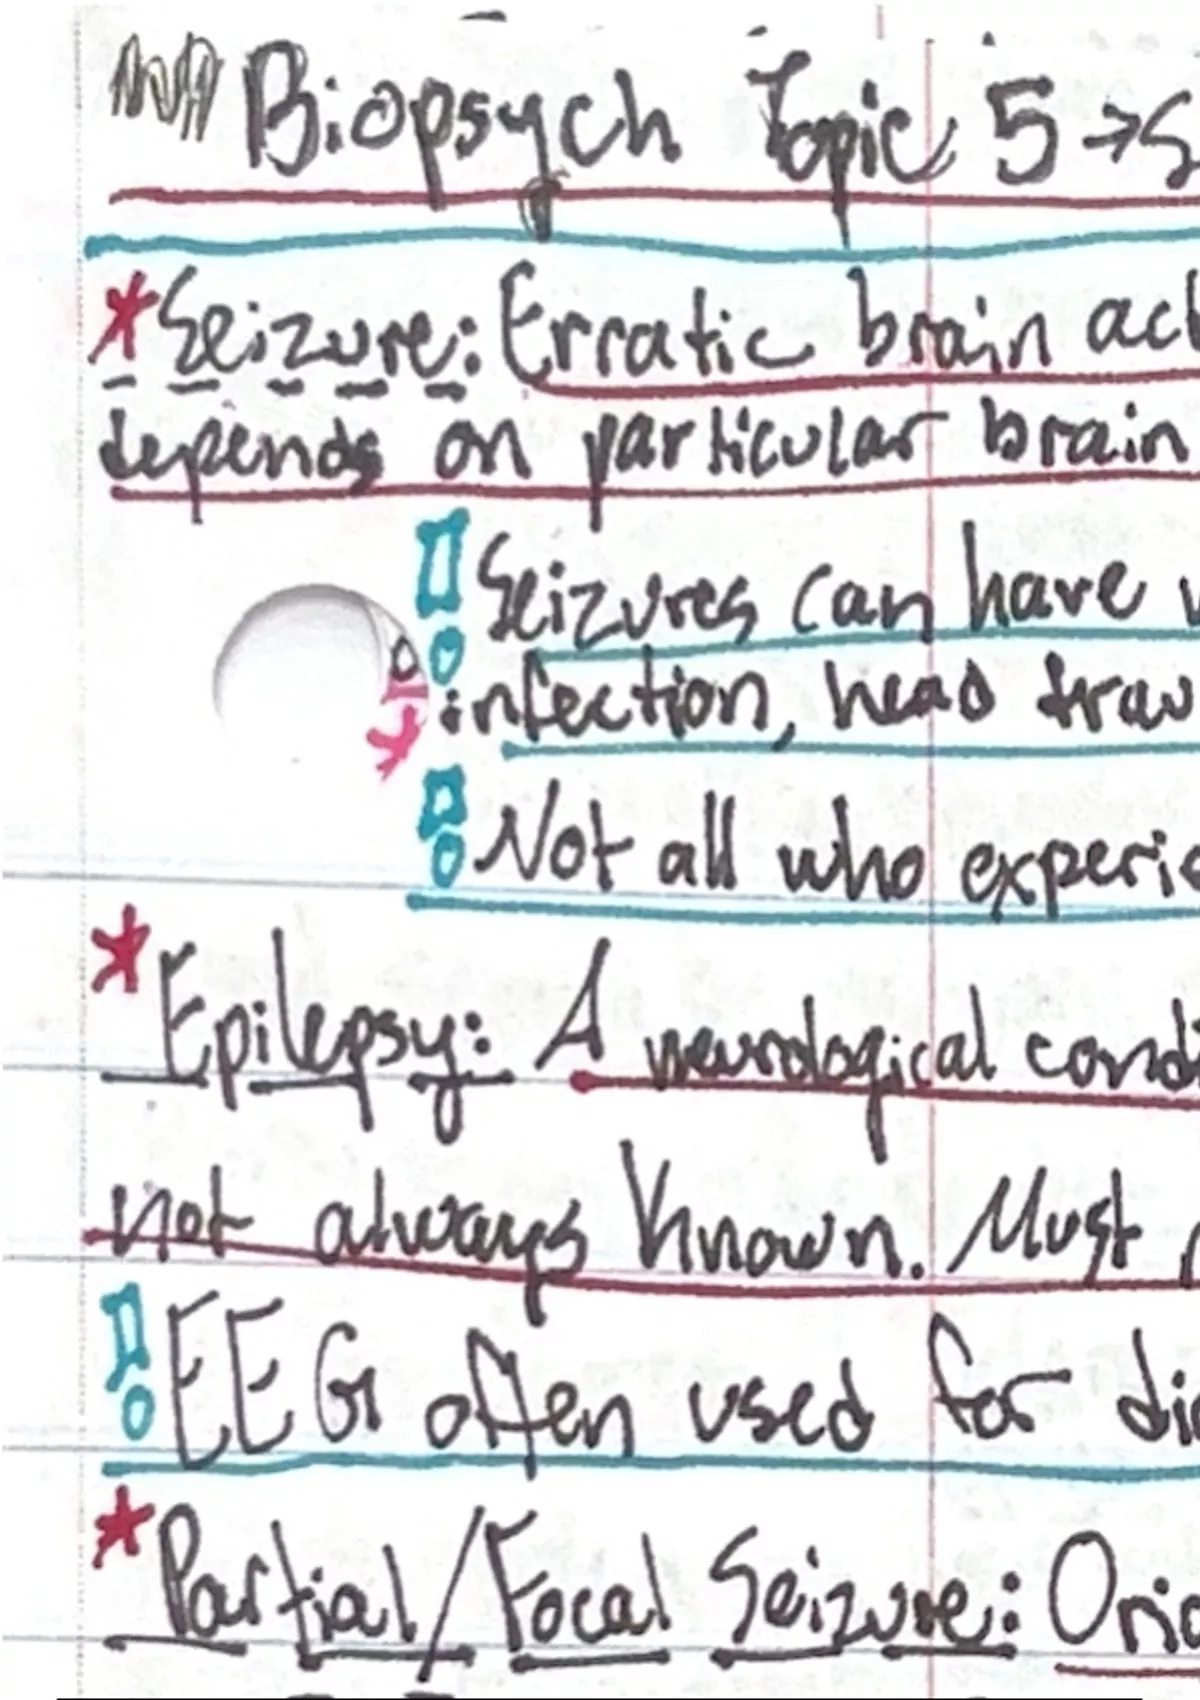 Biopsych Topic 5 → S
*Seizure: Erratic brain act
depends on particular brain
Seizures can have
infection, head trau
Not all who experie
*Epilepsy: A neurological condi
not always known. Must
EEG often used for dia
*Partial/Focal Seizure: Orig